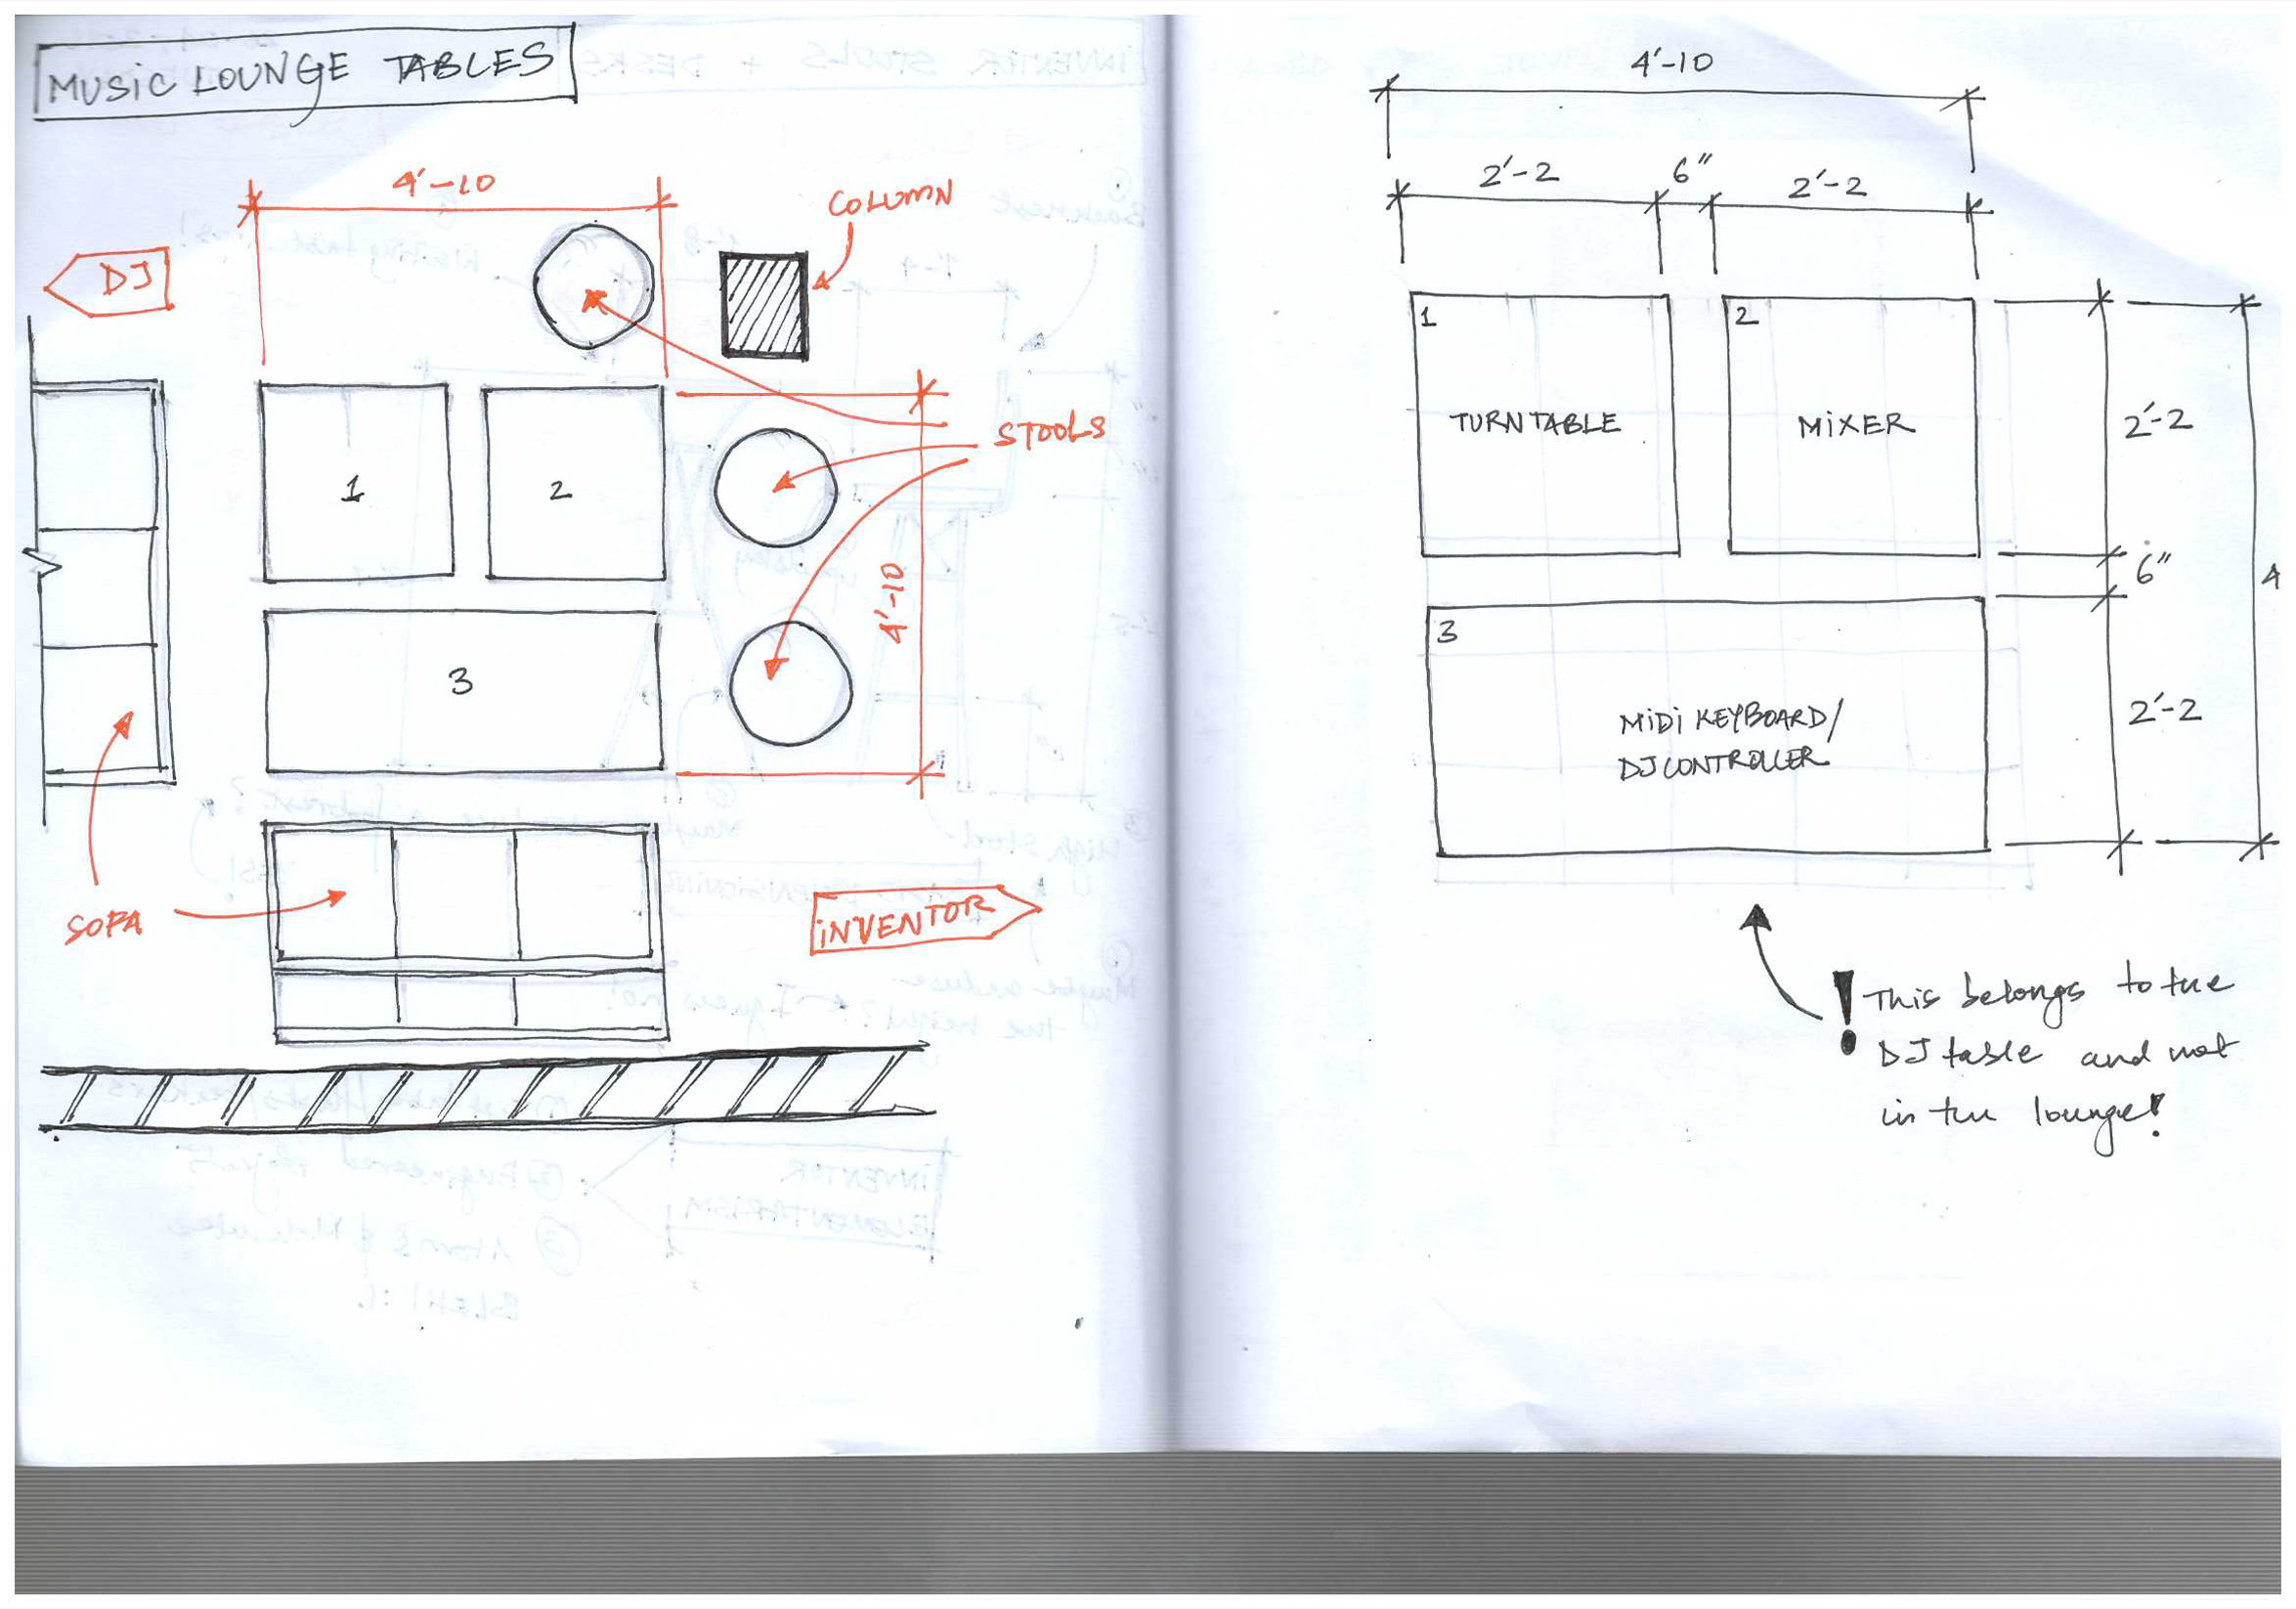 MUSIC LOUNGE TABLES
4'-10
COLUMN
DJ
STOOLS
1
2
4'-10
3
SOFA
INVENTOR
4'-10
2'-2
6"
2'-2
1
2
TURNTABLE
MIXER
2'-2
6"
4
3
MIDI KEYBOARD/
DJ CONTROLLER
2'-2
! This belongs to the
DJ table and not
in the lounge!